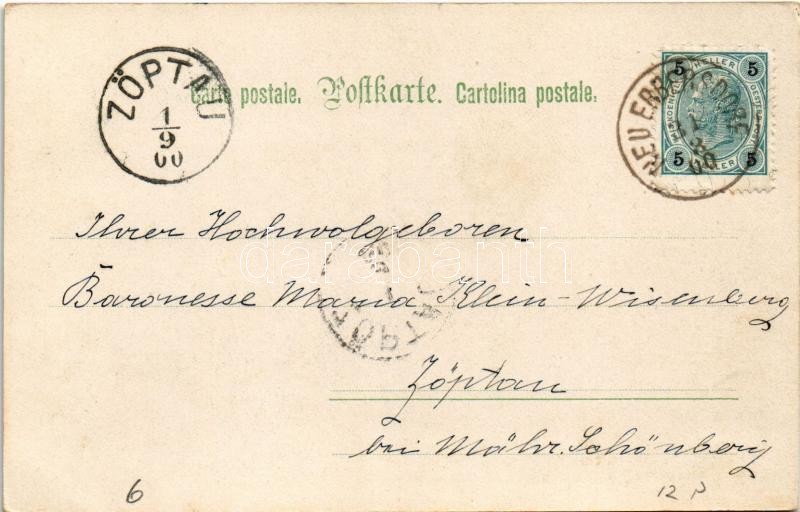 Carte postale. Postkarte. Cartolina postale.
ZÖPTAU
1
9
00
NEU ERBERSDORF
5 HELLER 5
5 HELLER 5
Ihrer Hochwolgeboren
Baronesse Maria Klein-Wisenberg
Zöptau
bei Mähr. Schönberg
darabanth
6
12 P